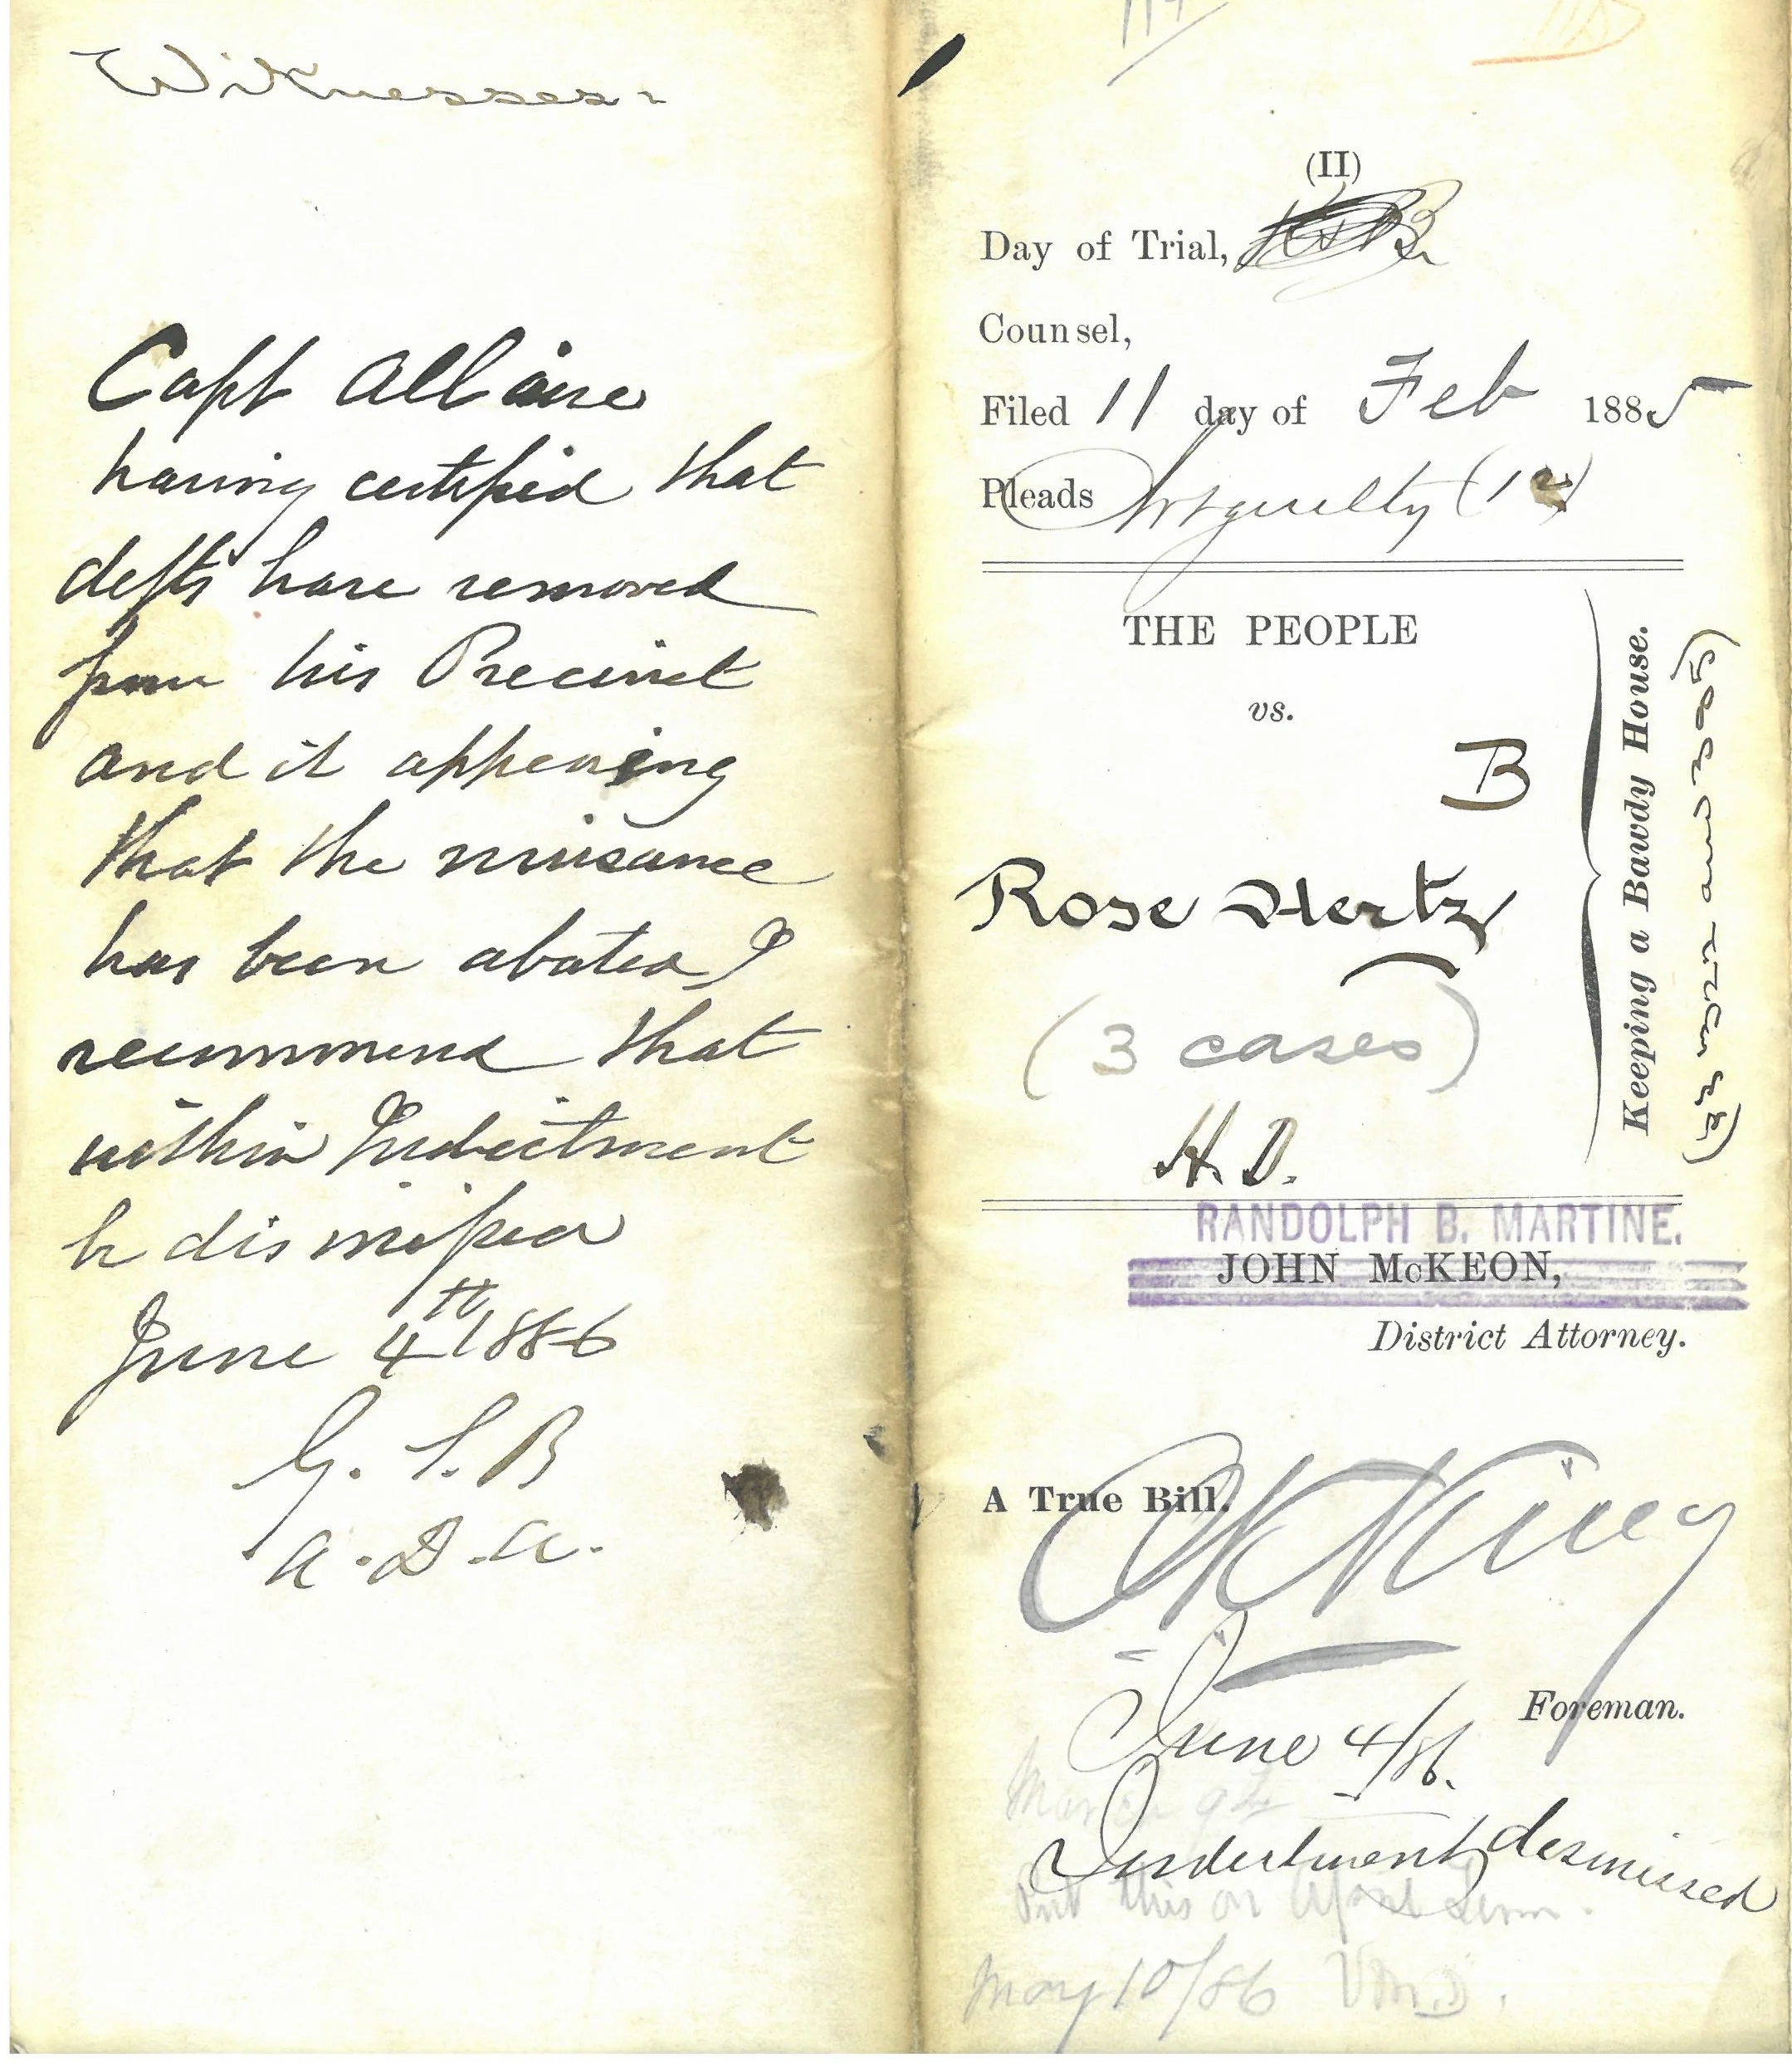 Witnesses:
Capt Allaire
having certified that
defts have removed
from his Precinct
and it appearing
that the nuisance
has been abated I
recommend that
within Indictment
be dismissed
June 4th 1886
G. S. B
A. D. A.
(II)
Day of Trial,
Counsel,
Filed 11 day of Feb 1885
Pleads Not guilty (12)
THE PEOPLE
vs.
B
Rose Hertz
(3 cases)
H. D.
Keeping a Bawdy House.
RANDOLPH B. MARTINE.
JOHN McKEON,
District Attorney.
A True Bill.
Foreman.
June 4/86.
March 9th
Indictment dismissed
Put this on April Term.
May 10/86